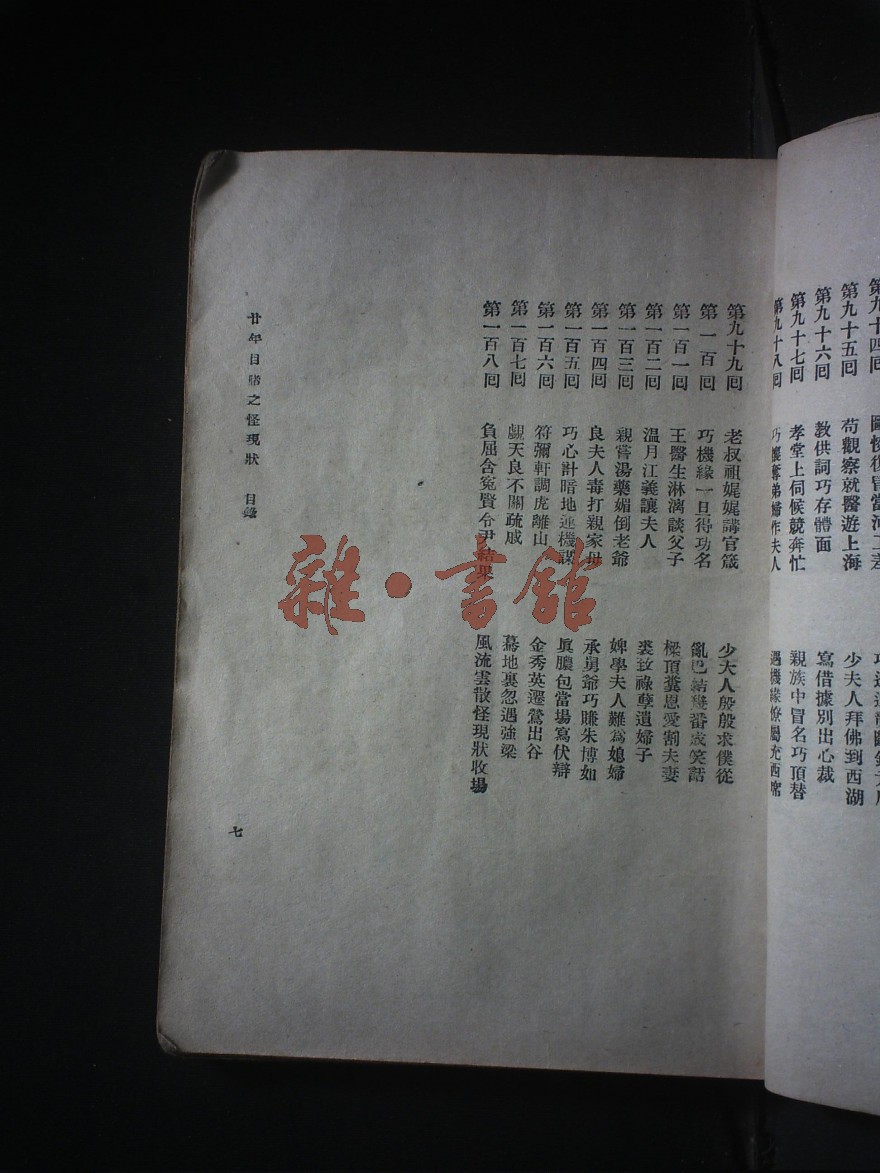 第九十四囘 圖恢復冒當河工差
第九十五囘 苟觀察就醫遊上海 少夫人拜佛到西湖
第九十六囘 教供詞巧存體面 寫借據別出心裁
第九十七囘 孝堂上伺候競奔忙 親族中冒名巧頂替
第九十八囘 巧攘奪弟婦作夫人 遇機緣僚屬充西席
第九十九囘 老叔祖娓娓講官箴 少大人殷殷求僕從
第一百囘 巧機緣一旦得功名 亂巴結幾番成笑話
第一百一囘 王醫生淋漓談父子 樑頂糞恩愛割夫妻
第一百二囘 溫月江義讓夫人 裘致祿孽遺婦子
第一百三囘 親嘗湯藥媚倒老爺 婢學夫人難爲媳婦
第一百四囘 良夫人毒打親家母 承舅爺巧賺朱博如
第一百五囘 巧心計暗地運機謀 眞膿包當場寫伏辯
第一百六囘 符彌軒調虎離山 金秀英遷鶯出谷
第一百七囘 覷天良不關疏戚 驀地裏忽遇強梁
第一百八囘 負屈含冤賢令尹結果 風流雲散怪現狀收場
廿年目睹之怪現狀 目錄
七
雜·書館